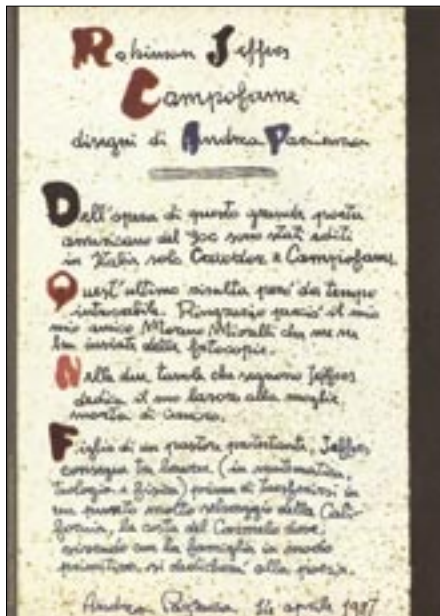 Robinson Jeffers
Campofame
disegni di Andrea Pazienza
Dell'opera di questo grande poeta
americano del '900 sono stati editi
in Italia solo Cawdor e Campofame.
Quest'ultimo risulta però da tempo
introvabile. Ringrazio perciò il mio
mio amico Moreno Miorelli che me ne
ha inviate delle fotocopie.
Nelle due tavole che seguono Jeffers
dedica il suo lavoro alla moglie,
morta di cancro.
Figlio di un pastore protestante, Jeffers
consegue tre lauree (in matematica,
teologia e fisica) prima di trasferirsi in
un punto molto selvaggio della Cali-
fornia, la costa del Carmelo dove,
vivendo con la famiglia in modo
primitivo, si dedicherà alla poesia.
Andrea Pazienza 14 aprile 1987